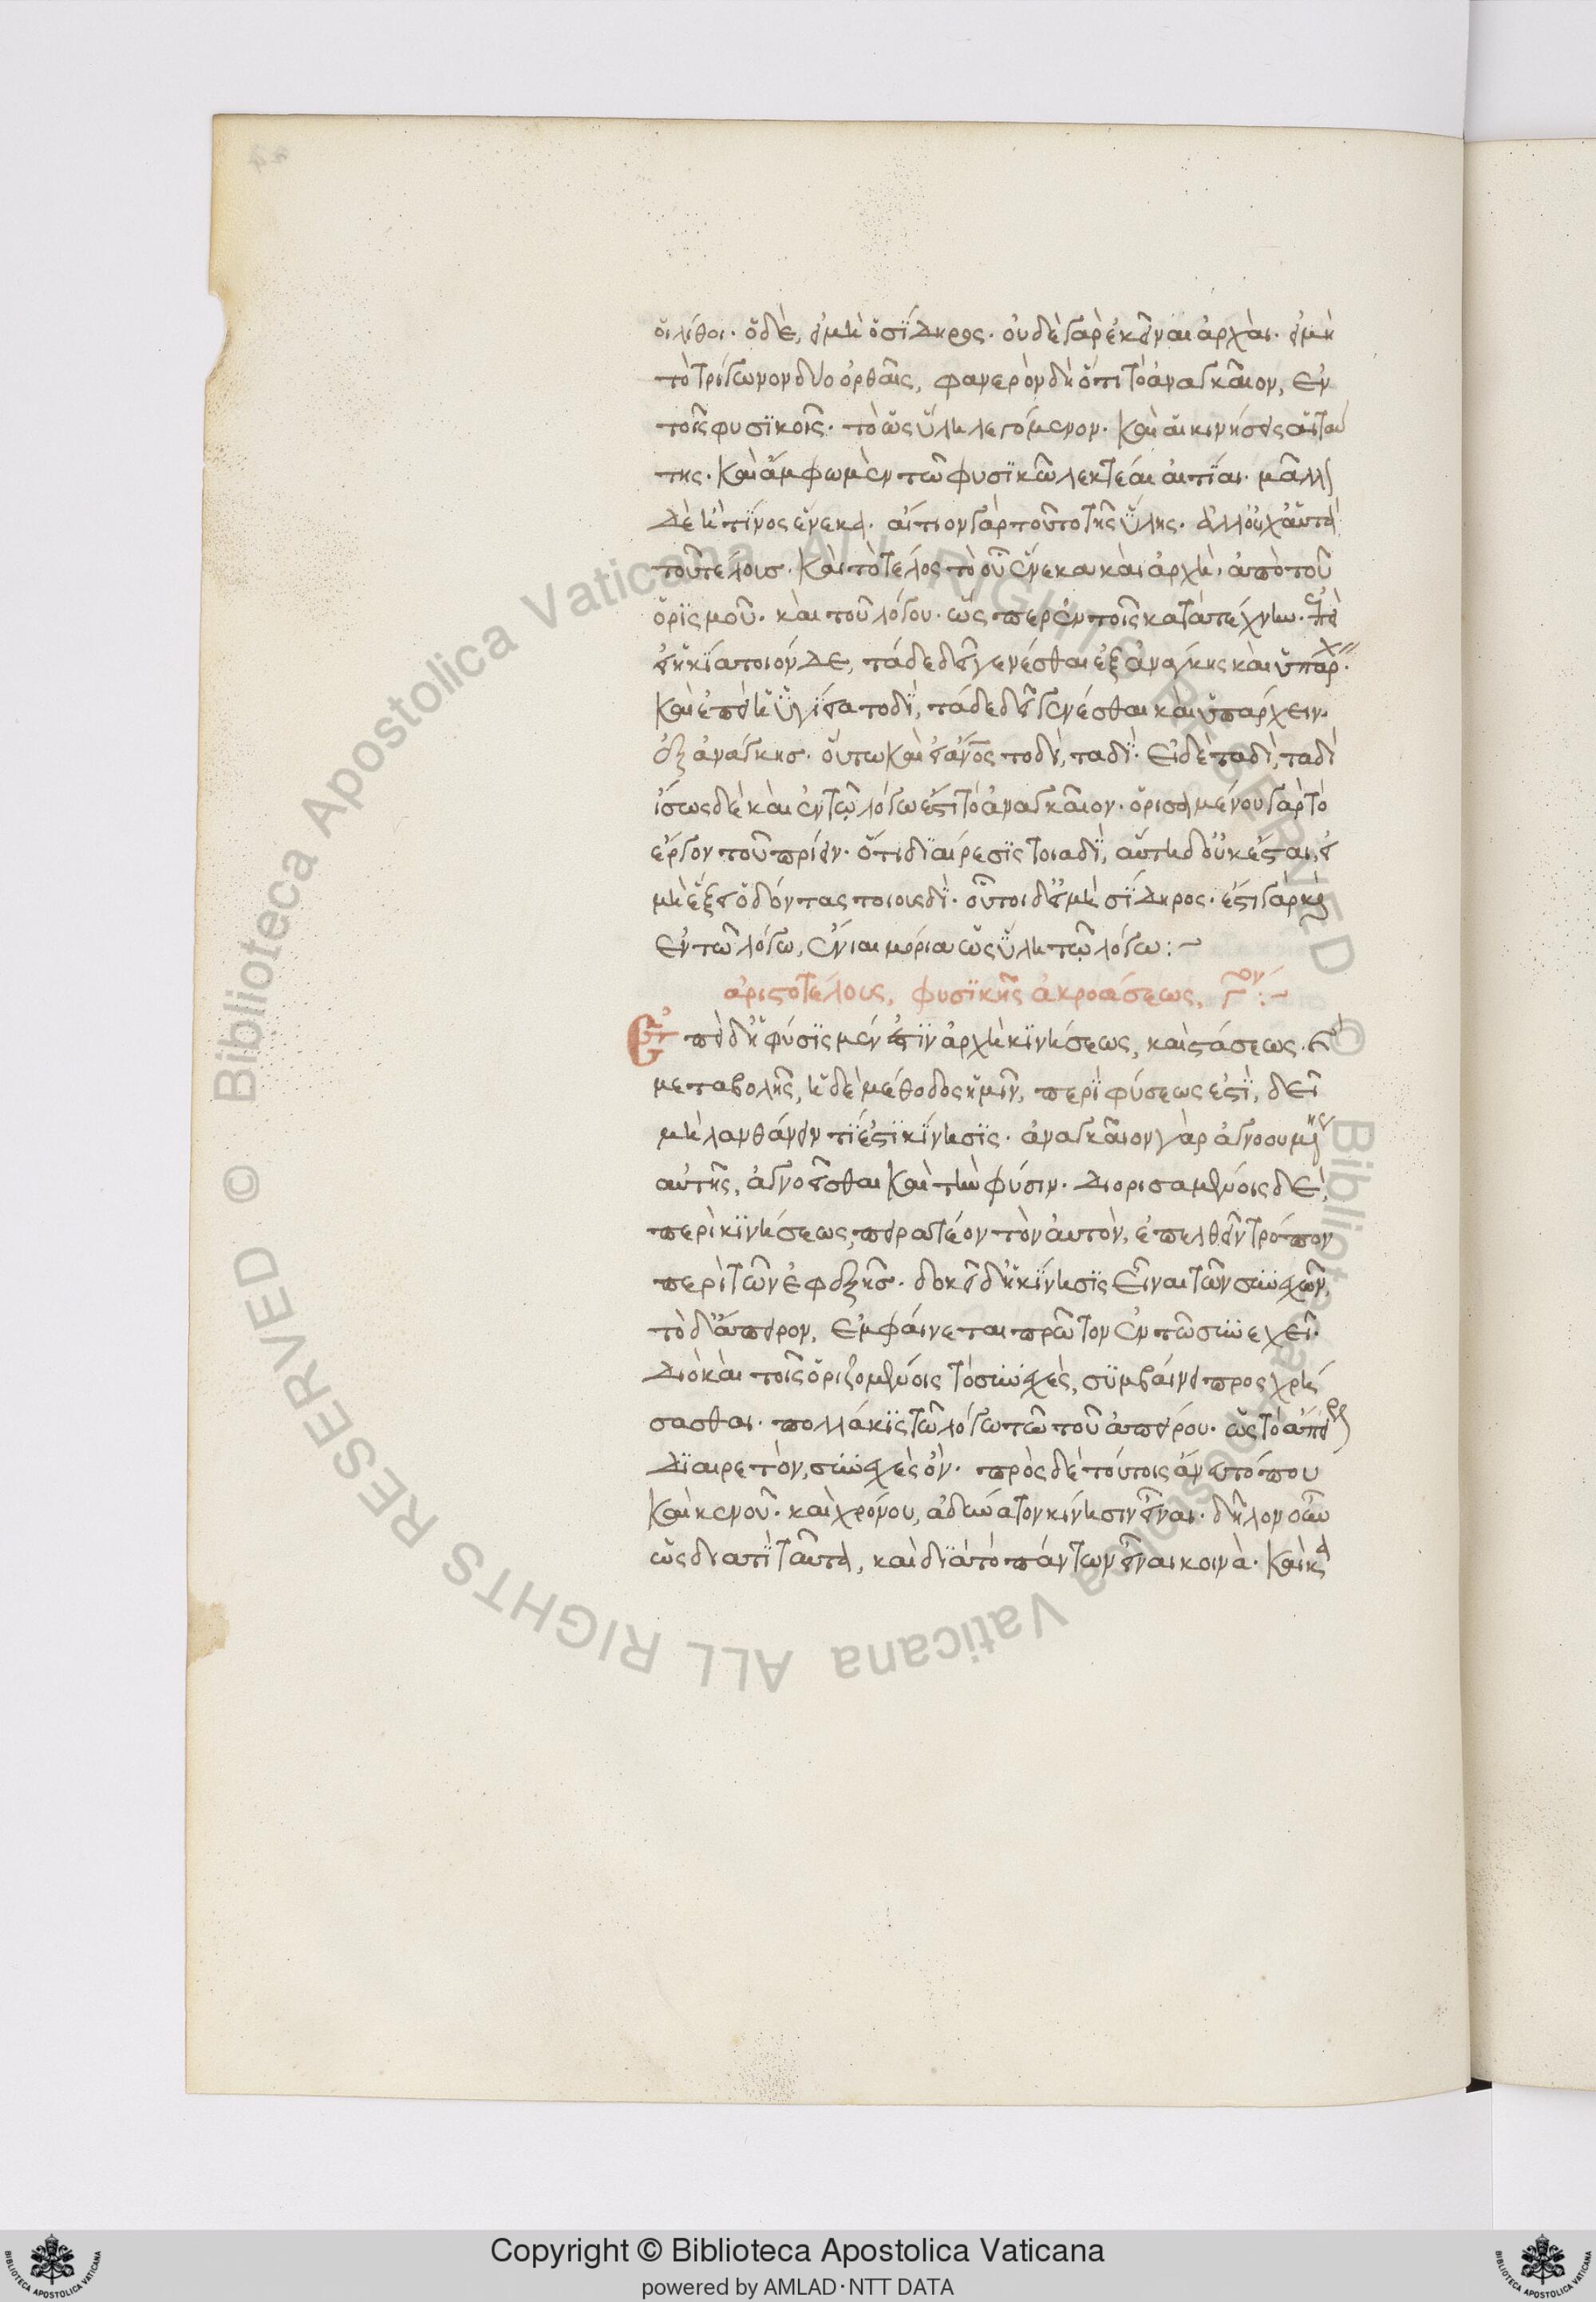 οἱ λίθοι. ὁ δὲ, εἰ μὴ ὁ σίδηρος. οὐδὲ γὰρ ἐκεῖ αἱ ἀρχαὶ. εἰ μὴ
τὸ τρίγωνον δύο ὀρθαῖς, φανερὸν δὴ ὅτι τὸ ἀναγκαῖον, ἐν
τοῖς φυσικοῖς. τὸ ὡς ὕλη λεγόμενον. καὶ αἱ κινήσεις αἱ ταύ
της. καὶ ἄμφω μὲν τῶ φυσικῶ λεκτέαι αἱ αἰτίαι. μᾶλλ
δὲ ἡ τίνος ἕνεκα. αἴτιον γὰρ τοῦτο τῆς ὕλης. ἀλλ' οὐχ αὕτη
τοῦ τέλους. καὶ τὸ τέλος τὸ οὗ ἕνεκα καὶ ἀρχὴ, ἀπὸ τοῦ
ὁρισμοῦ. καὶ τοῦ λόγου. ὥσπερ ἐν τοῖς κατὰ τέχνην. ἐπεὶ
ἡ οἰκία τοιόνδε, τάδε δεῖ γενέσθαι ἐξ ἀνάγκης καὶ ὑπάρχ
καὶ ἐπεὶ ἡ ὑγίεια τοδὶ, τάδε δεῖ γενέσθαι καὶ ὑπάρχειν.
ἐξ ἀνάγκησ. οὕτω καὶ εἰ ἄνος τοδὶ, ταδὶ. εἰ δὲ ταδὶ, ταδὶ
ἴσως δὲ καὶ ἐν τῷ λόγω ἐστὶ τὸ ἀναγκαῖον. ὁρισαμένου γὰρ τὸ
ἔργον τοῦ πρίειν. ὅτι διαίρεσις τοιαδὶ, αὕτη δ' οὐκ ἔσται, εἰ
μὴ ἕξει ὀδόντας τοιουσδὶ. οὗτοι δ' εἰ μὴ σίδηρος. ἔστι γὰρ καὶ
ἐν τῶ λόγω, ἔνια μόρια ὡς ὕλη τῷ λόγω:~
ἀριστοτέλους, φυσικῆς ἀκροάσεως, Γον:~
Ἐπεὶ δ' ἡ φύσις μέν ἐστιν ἀρχὴ κινήσεως, καὶ στάσεως. καὶ
μεταβολῆς, ἡ δὲ μέθοδος ἡμῖν, περὶ φύσεως ἐστὶ, δεῖ
μὴ λανθάνειν τί ἐστὶ κίνησις. ἀναγκαῖον γὰρ ἀγνοουμένης
αὐτῆς, ἀγνοεῖσθαι καὶ τὴν φύσιν. διορισαμένοις δὲ,
περὶ κινήσεως, πειρατέον τὸν αὐτὸν, ἐπελθεῖν τρόπον
περὶ τῶν ἐφεξῆσ. δοκεῖ δ' ἡ κίνησις εἶναι τῶν συνεχῶν,
τὸ δ' ἄπειρον, ἐμφαίνεται πρῶτον ἐν τῶ συνεχεῖ.
διὸ καὶ τοῖς ὁριζομένοις τὸ συνεχὲς, συμβαίνει προσχρή
σασθαι. πολλάκις τῶ λόγω τῶ τοῦ ἀπείρου. ὡς τὸ ἄπειρον
διαιρετὸν, συνεχὲς ὂν. πρὸς δὲ τούτοις ἄνευ τόπου
καὶ κενοῦ. καὶ χρόνου, ἀδύνατον κίνησιν εἶναι. δῆλον οὖν
ὡς διά τι ταῦτα, καὶ διὰ τὸ πάντων εἶναι κοινὰ. καὶ κα
Copyright © Biblioteca Apostolica Vaticana
powered by AMLAD·NTT DATA